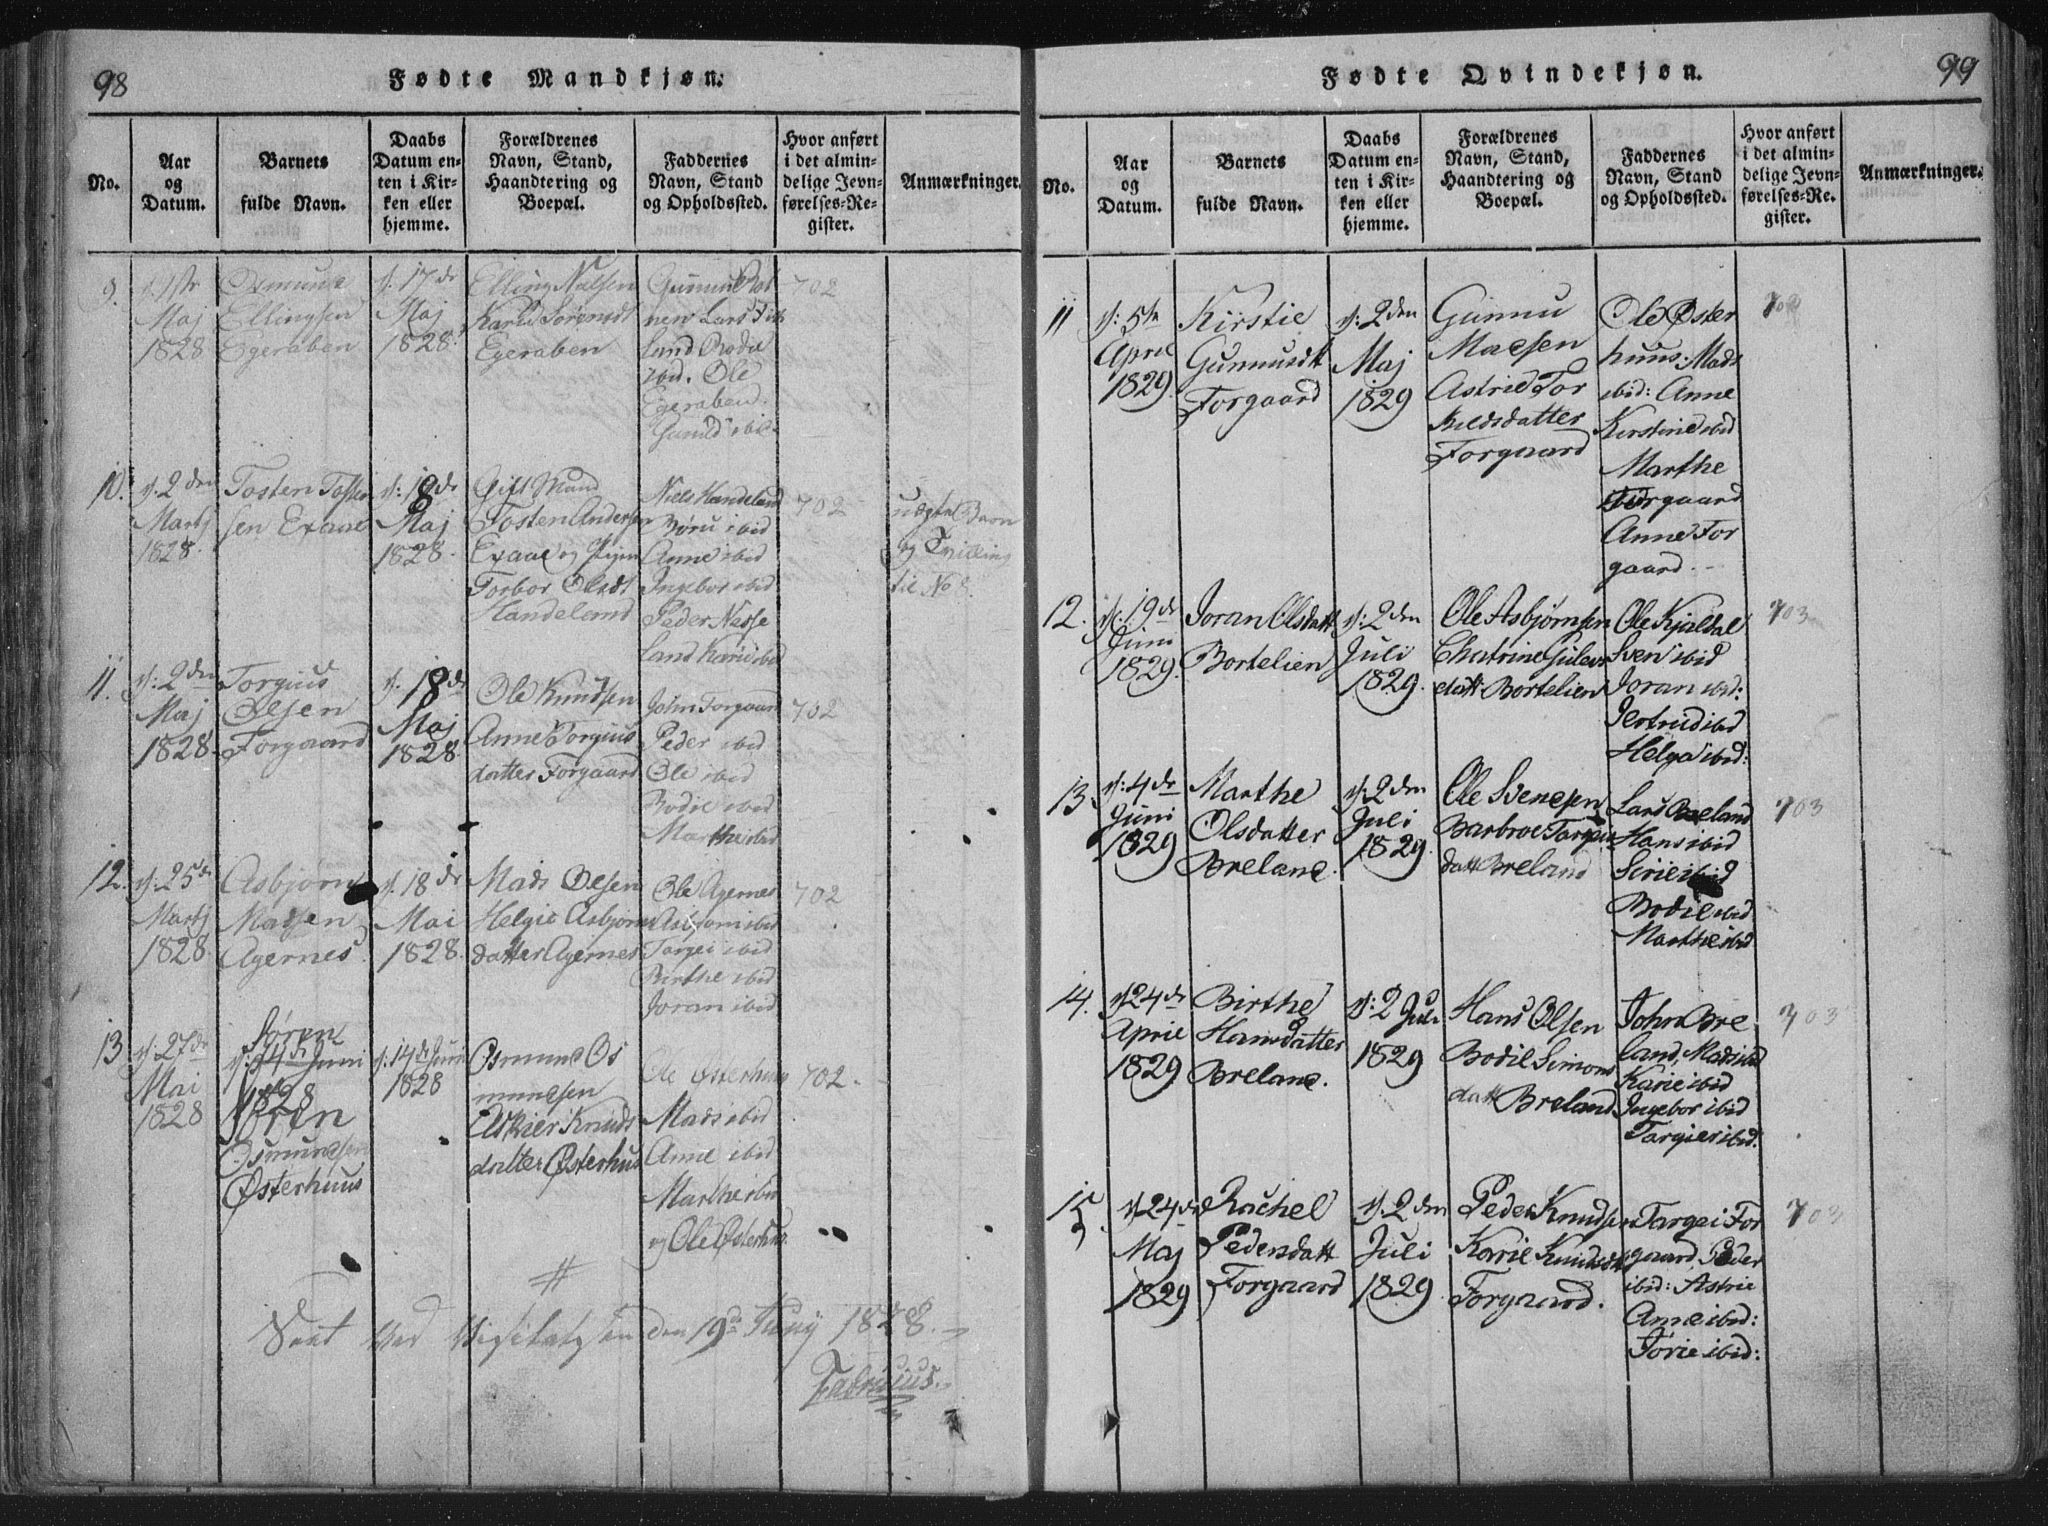 98
Fødte Mandkjøn.
No.
Aar
og
Datum.
Barnets
fulde Navn.
Daabs
Datum en-
ten i Kir-
ken eller
hjemme.
Forældrenes
Navn, Stand,
Haandtering og
Boepæl.
Faddernes
Navn, Stand
og Opholdssted.
Hvor anført
i det almin-
delige Jevn-
førelses-Re-
gister.
Anmærkninger.
9.
Maj
1828
Osmund
Ellingsen
Egeraben
d: 17de
Maj
1828.
Elling
Karie Sørensdt
Egeraben
Gunnu
nen Lars
land Bodil
ibid. Ole
Egeraben
Gunild ibid
702
10.
d: 2den
Martj
1828.
Tosten Tosten
sen Exaae
d: 18de
Maj
1828.
Gift Mand
Tosten Andersen
Exaae og Pigen
Torbor Olsdt
Handeland
Niels Handeland
Børu ibid
Anne ibid
Ingebor ibid
Peder Nesse
land Karie ibid
702
uægte Barn
og Tvilling
til No 8.
11.
d: 2den
Maj
1828.
Torgius
Olsen
Forgaard
d. 18de
Maj
1828.
Ole Knudsen
Anne Torgius
datter Forgaard
John Forgaard
Peder ibid
Ole ibid
Bodil ibid
Marthe ibid
702
12.
d: 25de
Martj
1828.
Asbjørn
Madsen
Agernes.
d. 18de
Mai
1828.
Mads Olsen
Helgie Asbjørns
datter Agernes
Ole Agernes
Asbjørn ibid
Targei ibid
Birthe ibid
Joran ibid
702
13
d: 27de
Mai
1828
Søren
d: 14de Juni
1828
Søren
Osmundsen
Østerhuus
d: 14de Juni
1828
Osmund Os
mundsen
Knuds
datter Østerhus
Ole Østerhuus
Mads ibid
Anne ibid
Marthe ibid
og Ole Østerhus.
702.
#
Seet ved Visitatzen den 19de Juny 1828.
Fabricius.
99
Fødte Qvindekjøn.
No.
Aar
og
Datum.
Barnets
fulde Navn.
Daabs
Datum en-
ten i Kir-
ken eller
hjemme.
Forældrenes
Navn, Stand,
Haandtering og
Boepæl.
Faddernes
Navn, Stand
og Opholdssted.
Hvor anført
i det almin-
delige Jevn-
førelses-Re-
gister.
Anmærkninger.
11
d: 5te
April
1829.
Kirstie
Gunnusdt
Forgaard
d: 2den
Maj
1829
Gunnu
Madsen
Astrid Tor
kildsdatter
Forgaard
Ole Øster
huus: Mads
ibid: Anne
Kirstine ibid
Marthe
Forgaard
Anne For
gaard.
702
12.
d: 19de
Juni
1829.
Joran Olsdatt
Bortelien
d: 2den
Juli
1829.
Ole Asbjørnsen
Chatrine
datt Bortelien
Ole Kjaldal
Sven ibid
Joran ibid:
Jertrud ibid
Helga ibid:
703
13.
d: 4de
Juni
1829
Marthe
Olsdatter
Breland.
d: 2den
Juli
1829.
Ole Svendsen
Barbroe Targei
datt Breland
Lars Breland
Hans ibid
Sirie ibid
Bodil ibid
Marthe ibid
703
14.
d 24de
April
1829
Birthe
Hansdatter
Breland.
d: 2 Juli
1829
Hans Olsen
Bodil Simons
datt Breland
John Bre
land, Mads ibid
Karie ibid
Ingebor ibid
Targier ibid.
703
15.
d 24de
Maj
1829
Rachel
Pedersdatt
Forgaard
d. 2den
Juli
1829
Peder Knudsen
Karie Knudsdt
Forgaard.
Targei For
gaard, Peder
ibid: Astrie
Anne ibid:
Sørie ibid:
703